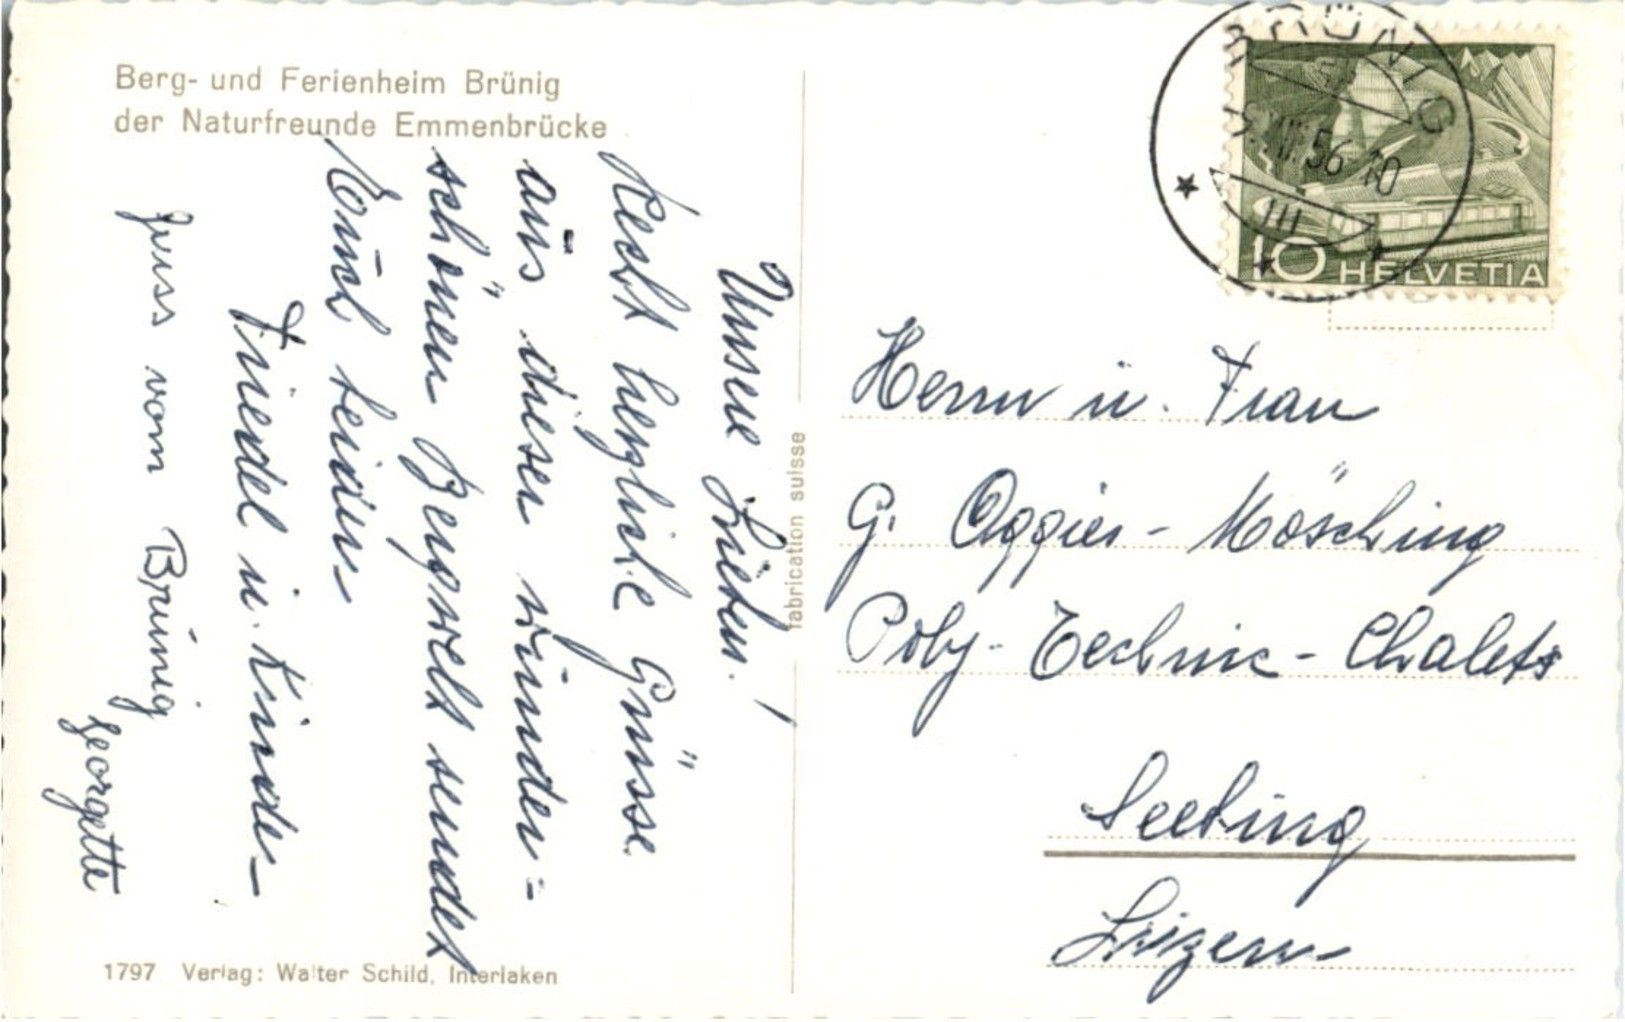 Berg- und Ferienheim Brünig
der Naturfreunde Emmenbrücke
Unsere Lieben!
Recht herzliche Grüsse
aus dieser wunder-
schönen Bergwelt sendet
Euch
Friedel u. Kinder
Gruss vom Brünig
Georgette
1797 Verlag: Walter Schild, Interlaken
fabrication suisse
BRÜNIG
56 10
10 HELVETIA
Herrn u. Frau
G. Oggier-Mösching
Poly-Technic-Chalets
Seeburg
Luzern